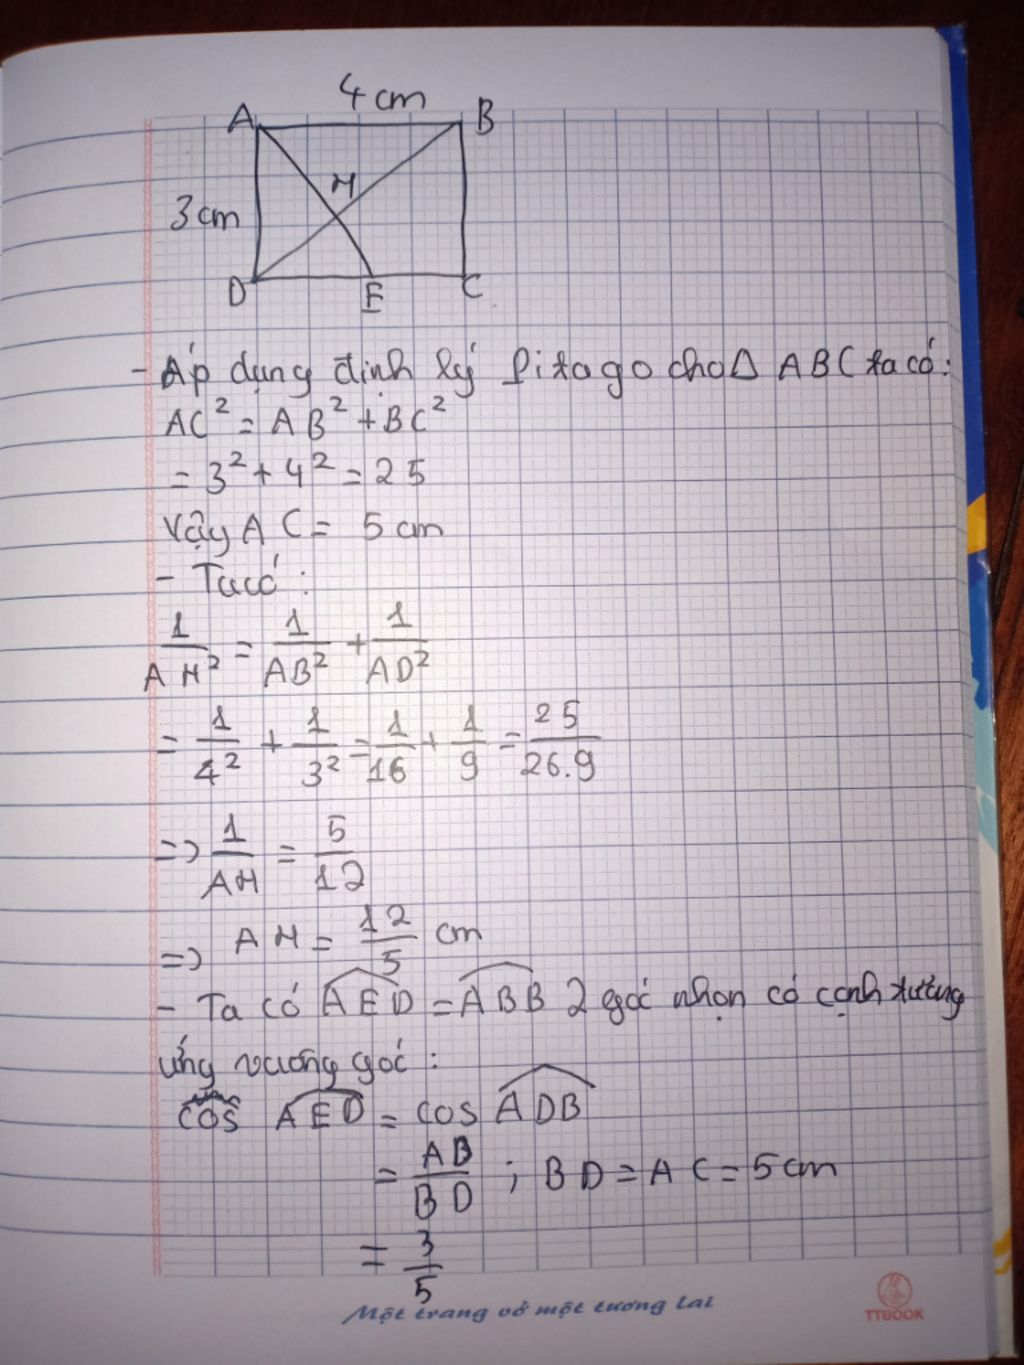 4 cm
A
B
H
3 cm
D
E
C
- Áp dụng định lý Pitago cho Δ ABC ta có:
AC² = AB² + BC²
= 3² + 4² = 25
Vậy AC = 5 cm
- Ta có:
1/AH² = 1/AB² + 1/AD²
= 1/4² + 1/3² = 1/16 + 1/9 = 25/26.9
=> 1/AH = 5/12
=> AH = 12/5 cm
- Ta có AED = ABB 2 góc nhọn có cạnh tương
ứng vuông góc:
cos AED = cos ADB
= AD/BD ; BD = AC = 5 cm
= 3/5
Một trang vở một tương lai
TTBOOK